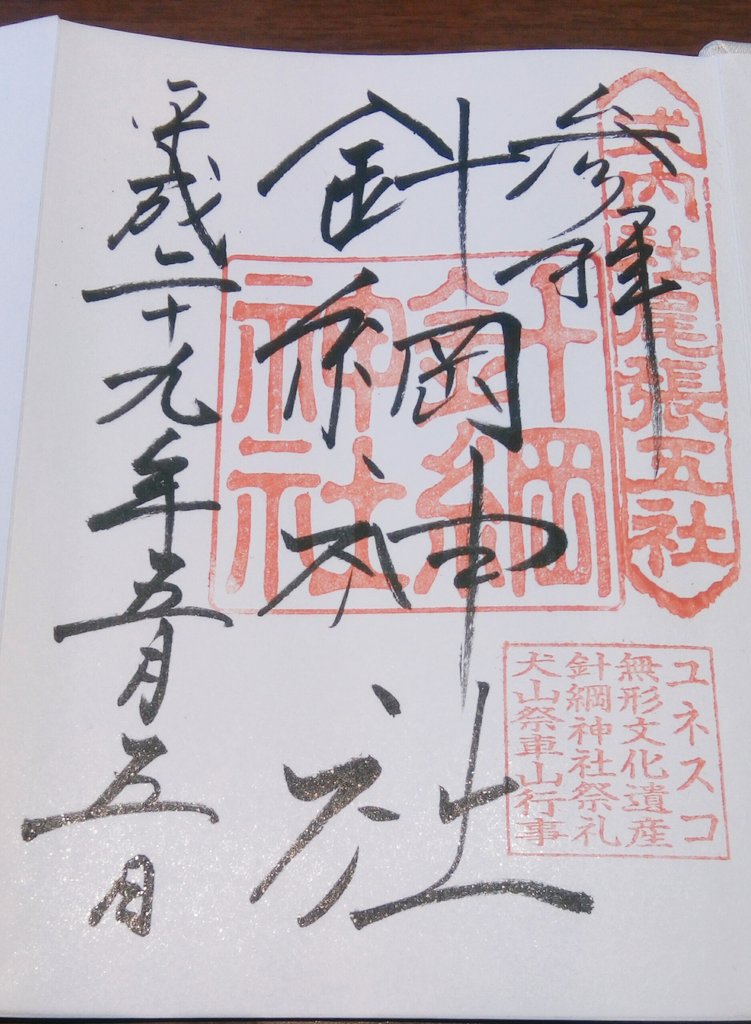 参拝
式内社尾張五社
針綱神社
針綱
神社
ユネスコ
無形文化遺産
針綱神社祭礼
犬山祭車山行事
平成二十九年五月五日